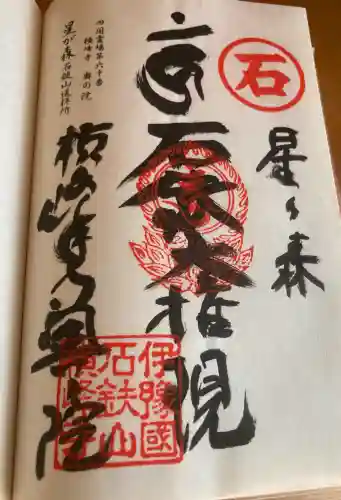 石
星ヶ森
石鉄大権現
四国霊場第六十番
横峰寺 奥の院
星が森石鎚山遥拝所
横峰寺奥之院
伊豫國
石鈇山
横峰寺